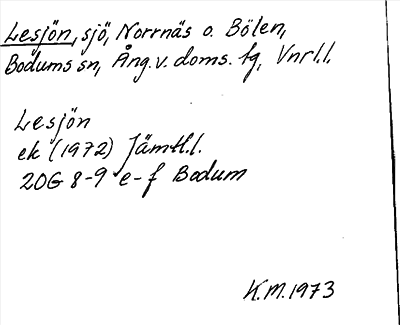 Lesjön, sjö, Norrnäs o. Bölen,
Bodums sn, Ång. v. doms. tg, Vnrl.l.
Lesjön
ek (1972) Jämtl.l.
20G 8-9 e-f Bodum
K.M. 1973